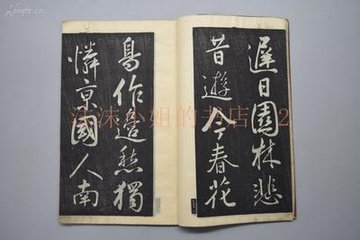 遲日園林悲
昔遊今春花
鳥作邊愁獨
憐京國人南
kongfz.cn
沫小姐的书店